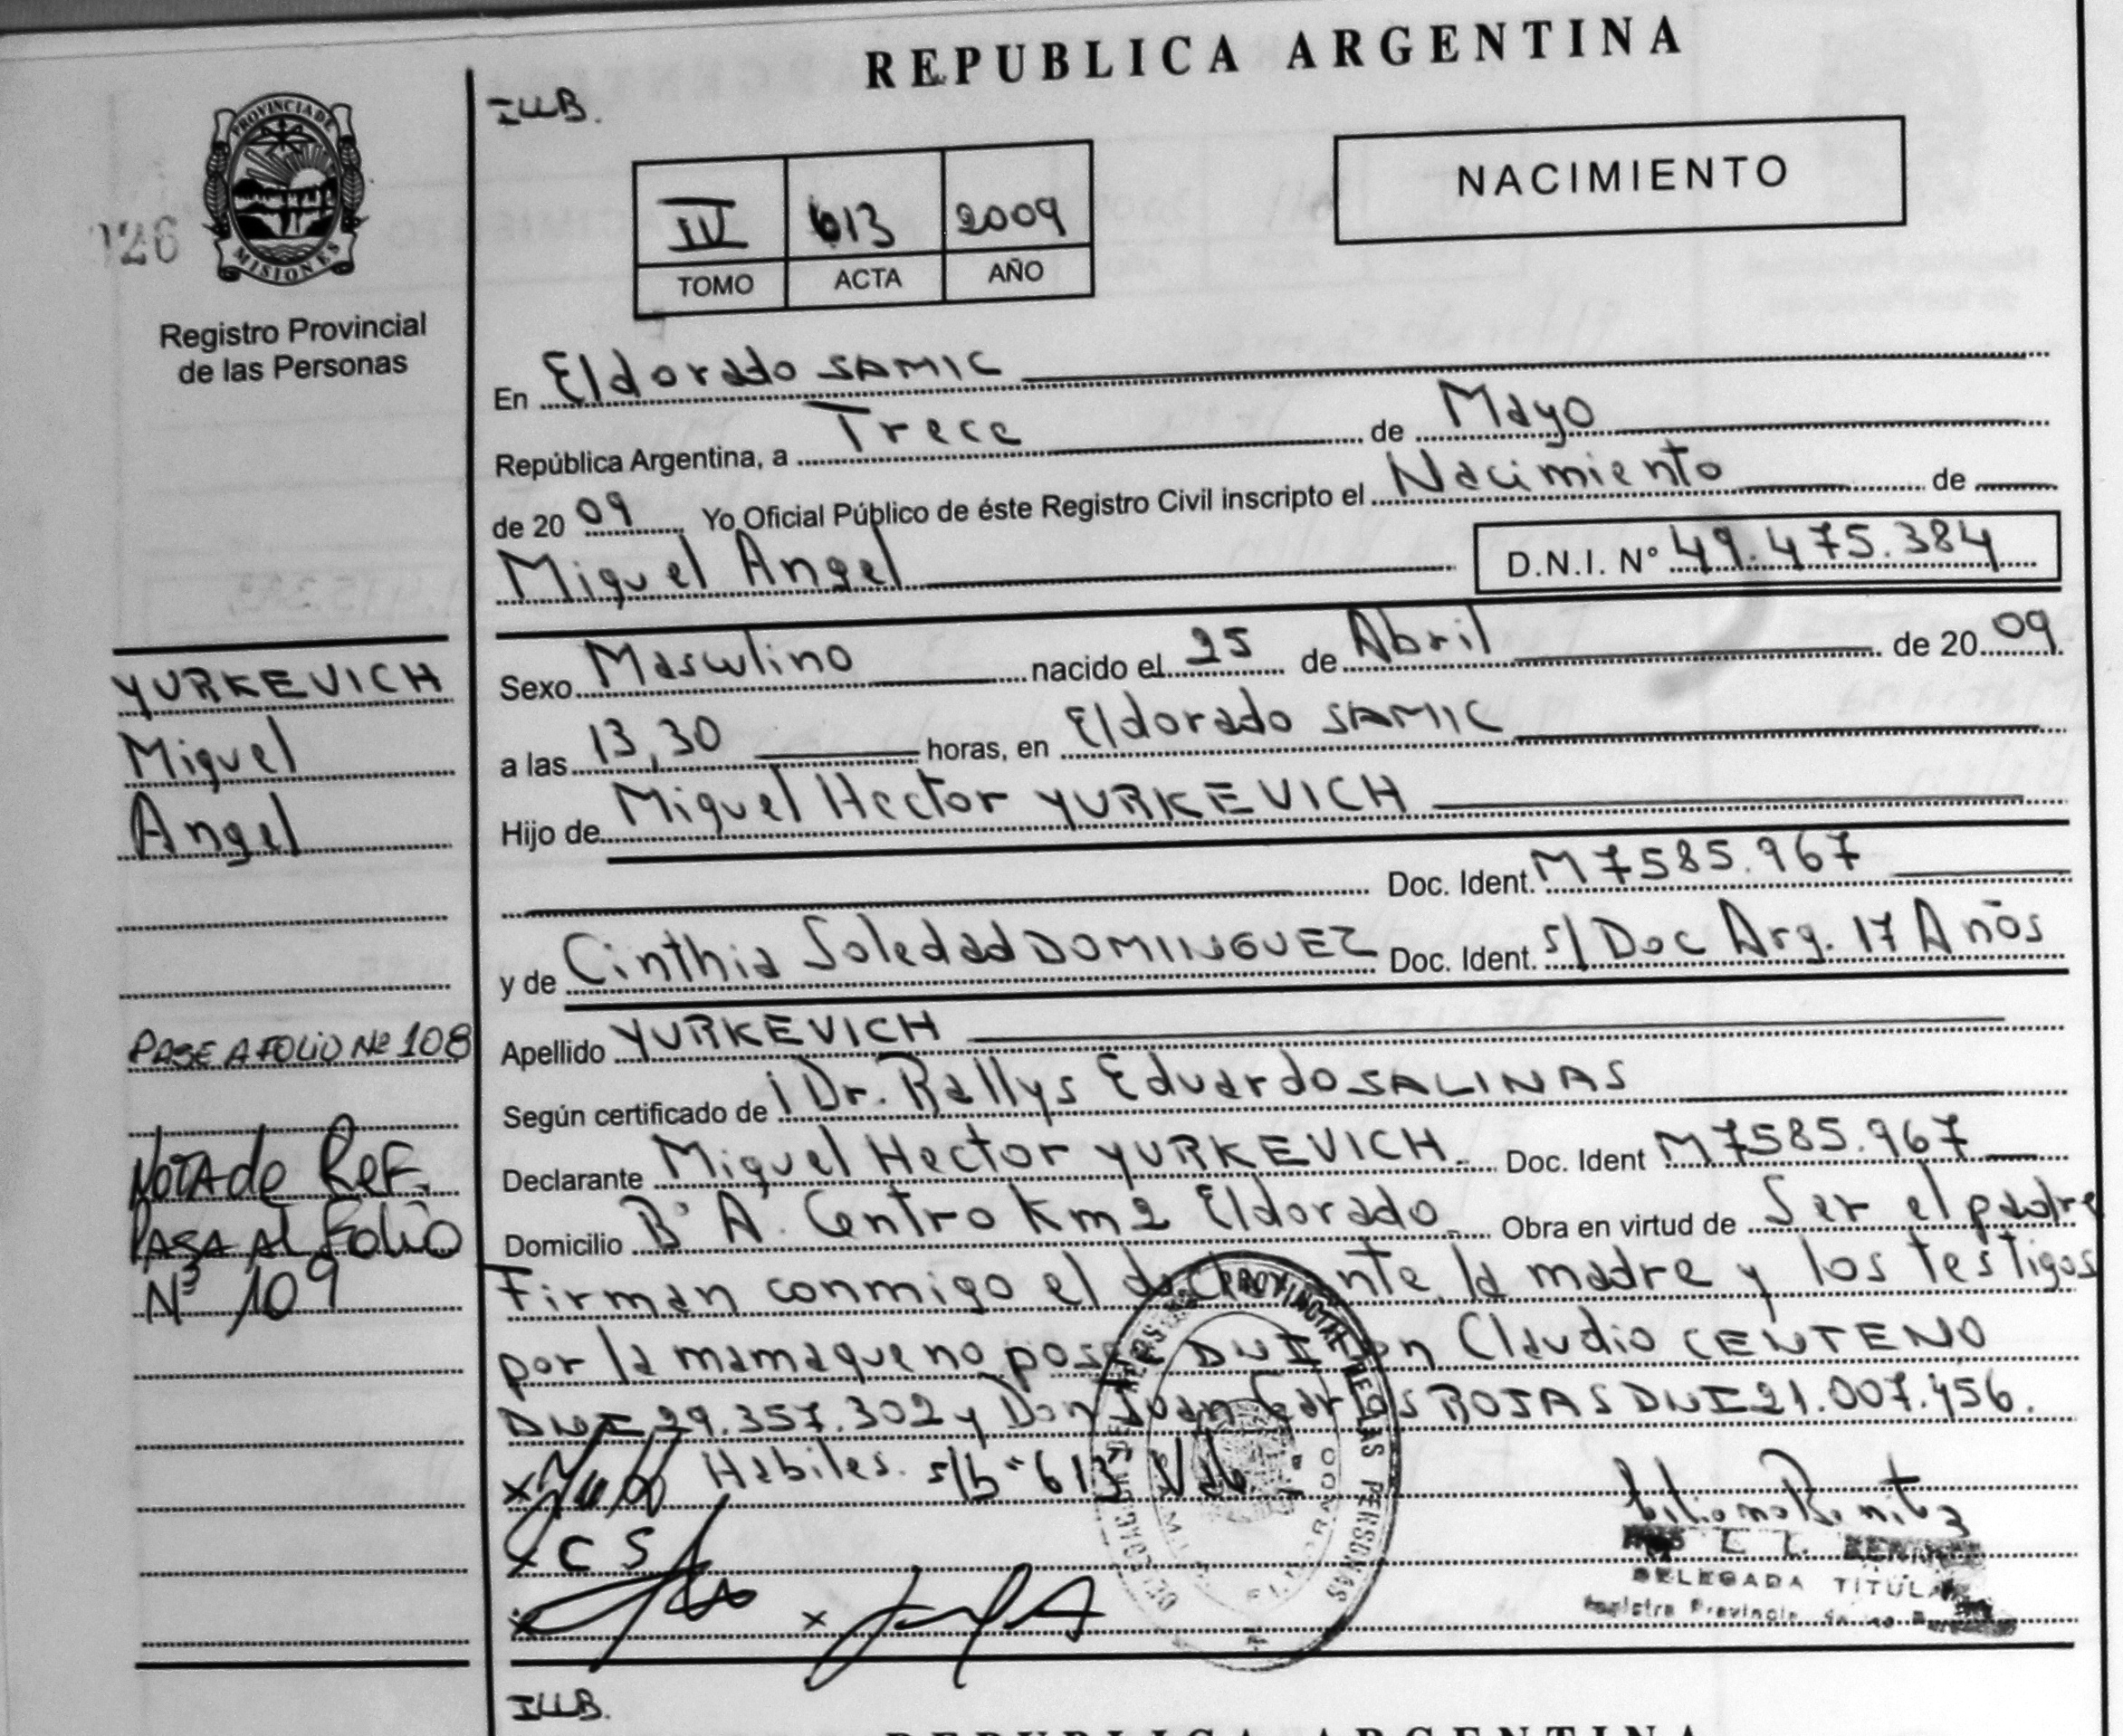 REPUBLICA ARGENTINA
ILLB.
PROVINCIA DE
MISIONES
126
Registro Provincial
de las Personas
IV 613 2009
TOMO ACTA AÑO
NACIMIENTO
En Eldorado SAMIC
República Argentina, a Trece de Mayo
de 20 09 Yo Oficial Público de éste Registro Civil inscripto el Nacimiento de
Miguel Angel D.N.I. Nº 49.475.384
Sexo Masculino nacido el 25 de Abril de 20 09
a las 13,30 horas, en Eldorado SAMIC
Hijo de Miguel Hector YURKEVICH
Doc. Ident. M7585.967
y de Cinthia Soledad DOMINGUEZ Doc. Ident. s/Doc Arg. 17 Años
Apellido YURKEVICH
Según certificado de Dr. Rallys Eduardo SALINAS
Declarante Miguel Hector YURKEVICH. Doc. Ident M7585.967
Domicilio Bº A. Centro Km2 Eldorado. Obra en virtud de Ser el padre
Firman conmigo el declarante, la madre y los testigos
por la mama que no posee DNI Don Claudio CENTENO
DNI 29.357.302 y Don Juan Carlos ROJAS DNI 21.007.456.
Habiles. s/b-613 Vale
x C S
x x
DELEGADA TITULAR
YURKEVICH
Miguel
Angel
PASE A FOLIO Nº 108
NOTA de REF.
PASA AL Folio
Nº 109
ILLB.
REPUBLICA ARGENTINA